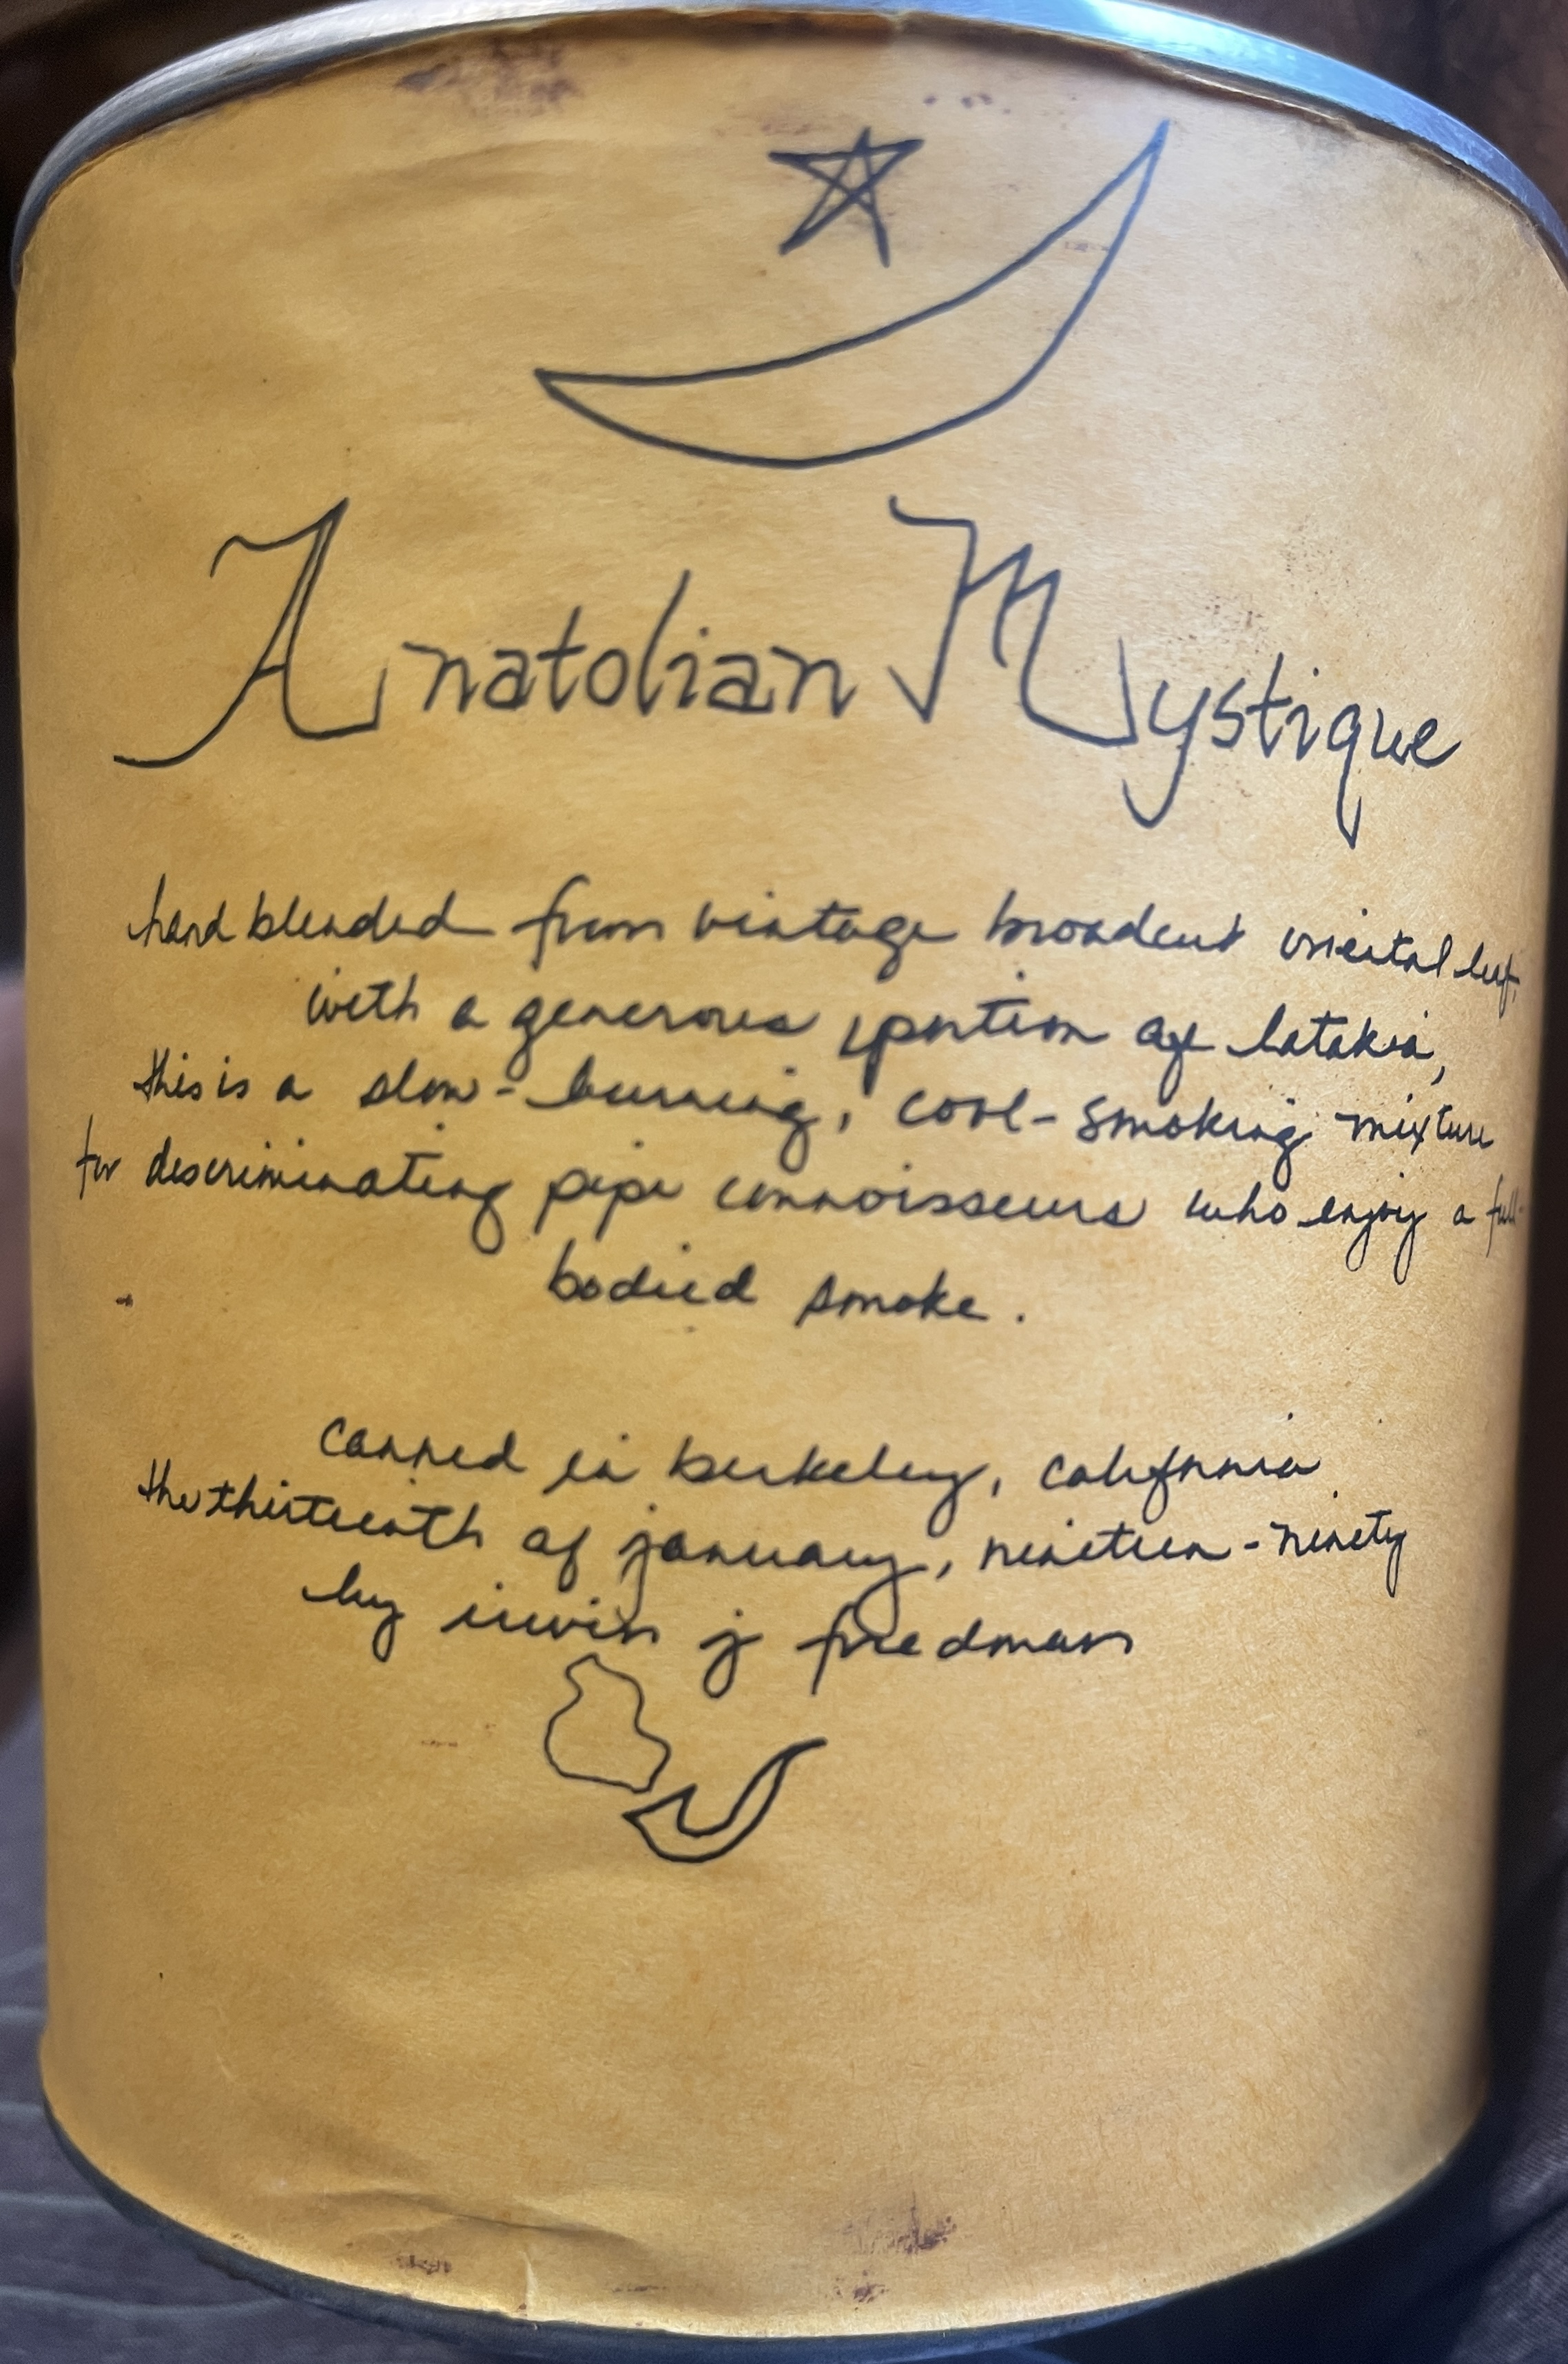 Anatolian Mystique
hand blended from vintage broadcut oriental leaf,
with a generous portion of latakia,
this is a slow-burning, cool-smoking mixture
for discriminating pipe connoisseurs who enjoy a full-
bodied smoke.
canned in berkeley, california
the thirteenth of january, nineteen-ninety
by irwin j friedman